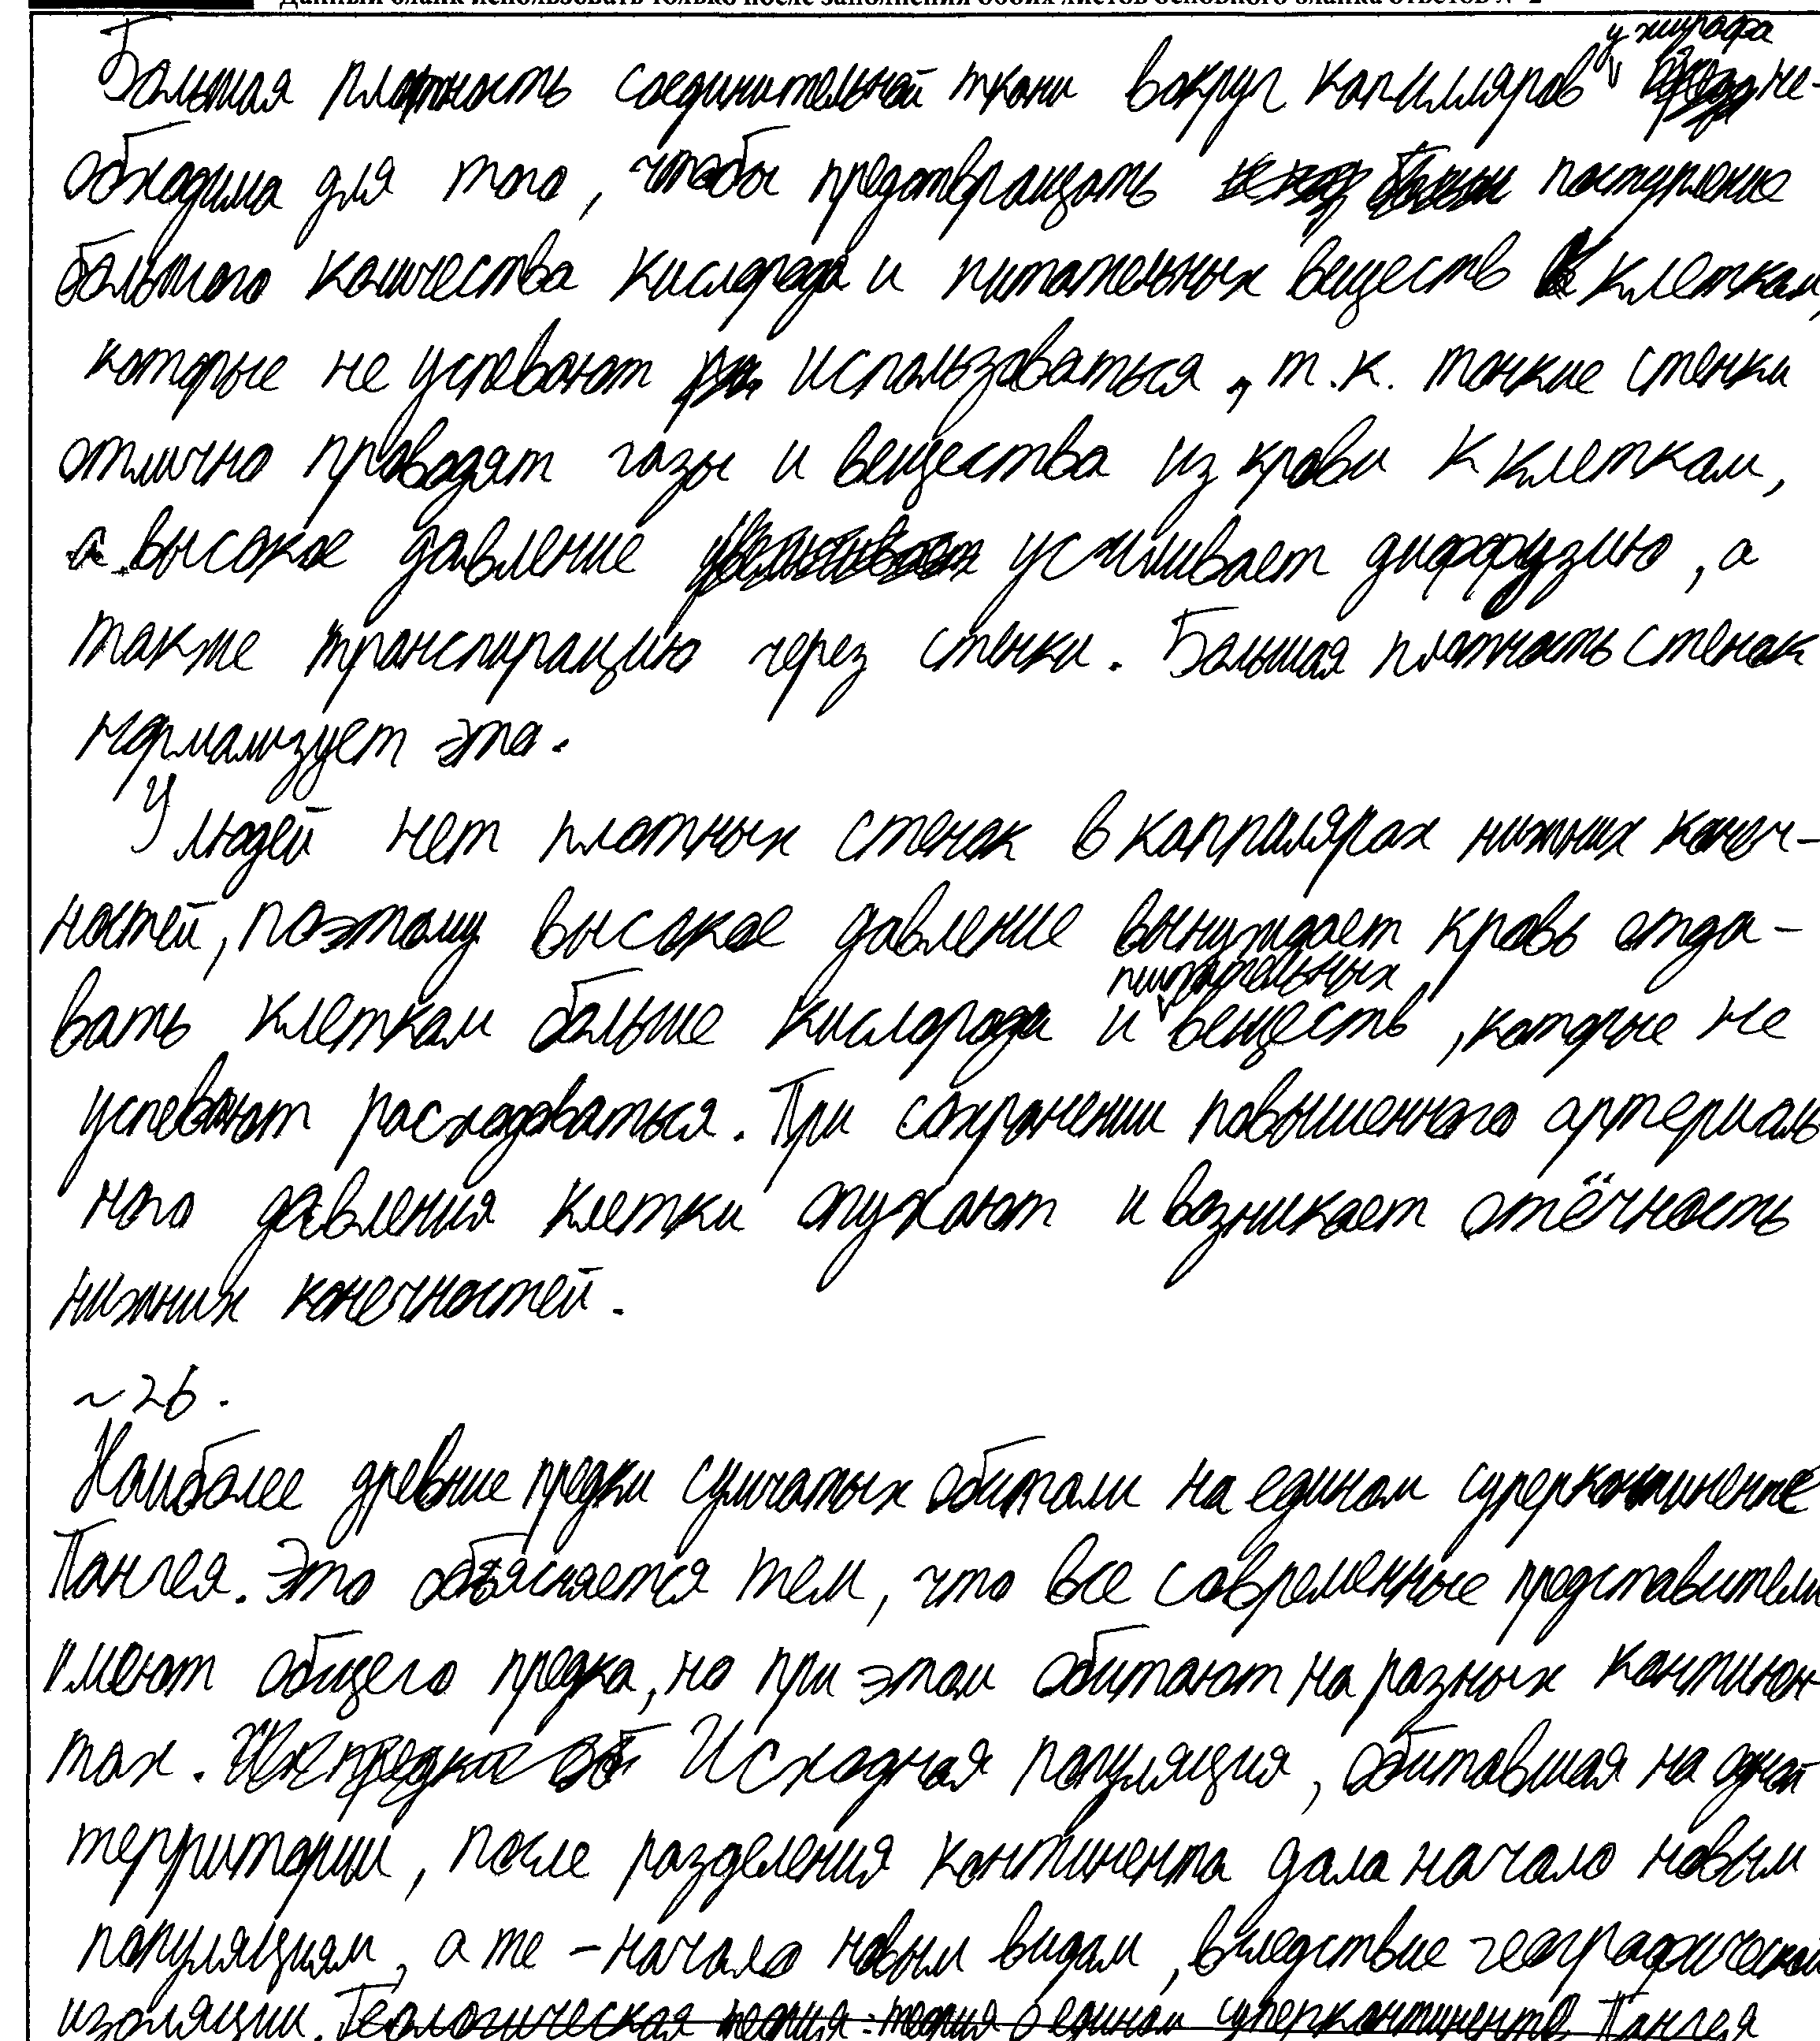 Данный бланк использовать только после заполнения обоих листов основного бланка ответов № 2
у жирафа
Большая плотность соединительной ткани вокруг капилляров не-
обходима для того, чтобы предотвращать поступление
большого количества кислорода и питательных веществ к клеткам,
которые не успевают использоваться, т.к. тонкие стенки
отлично проводят газы и вещества из крови к клеткам,
а высокое давление усиливает диффузию, а
также транспирацию через стенки. Большая плотность стенок
нормализует это.
У людей нет плотных стенок в каппилярах нижних конеч-
ностей, поэтому высокое давление вынуждает кровь отда-
питательных
вать клеткам больше кислорода и веществ, которые не
успевают расходоваться. При сохранении повышенного артериаль
ного давления клетки опухают и возникает отёчность
нижних конечностей.
~26.
Наиболее древние предки сумчатых обитали на едином суперконтиненте
Пангея. Это объясняется тем, что все современные представители
имеют общего предка, но при этом обитают на разных континен
тах. Их предки об Исходная популяция, обитавшая на одной
территории, после разделения континента дала начало новым
популяциям, а те - начало новым видам, вследствие географической
изоляции. Геологическая теория: теория о едином суперконтиненте Пангея